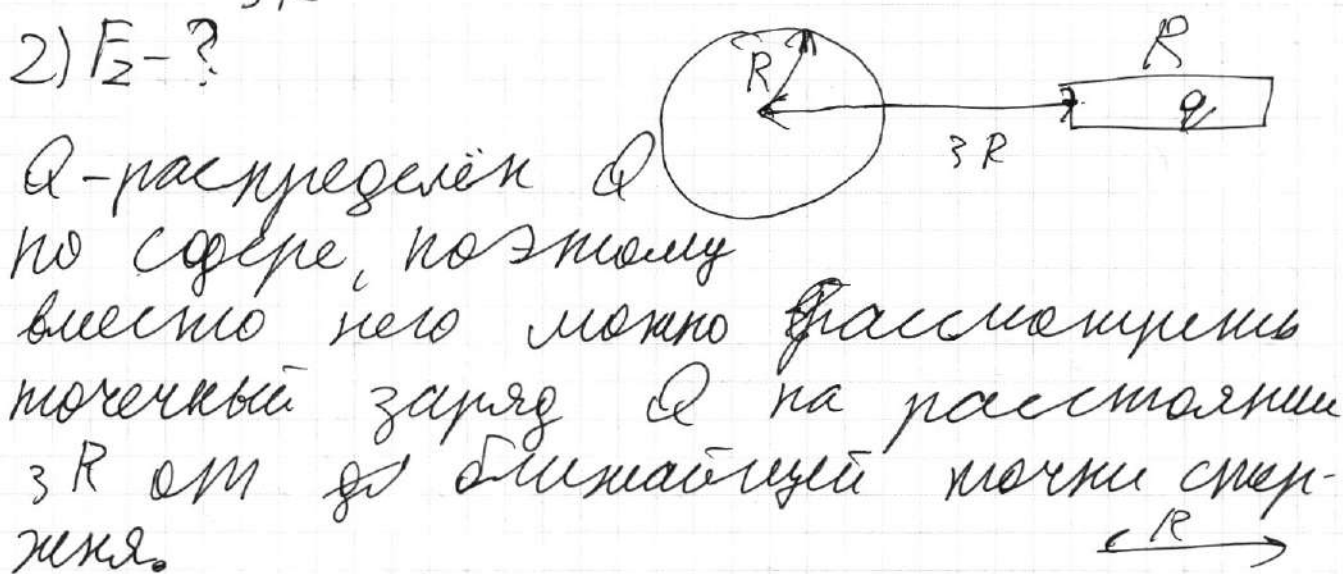 2) F₂ - ?
R
R
q
3R
Q - распределён Q
по сфере, поэтому
вместо него можно рассмотреть
точечный заряд Q на расстоянии
3R от до ближайшей точки стер-
жня.
R